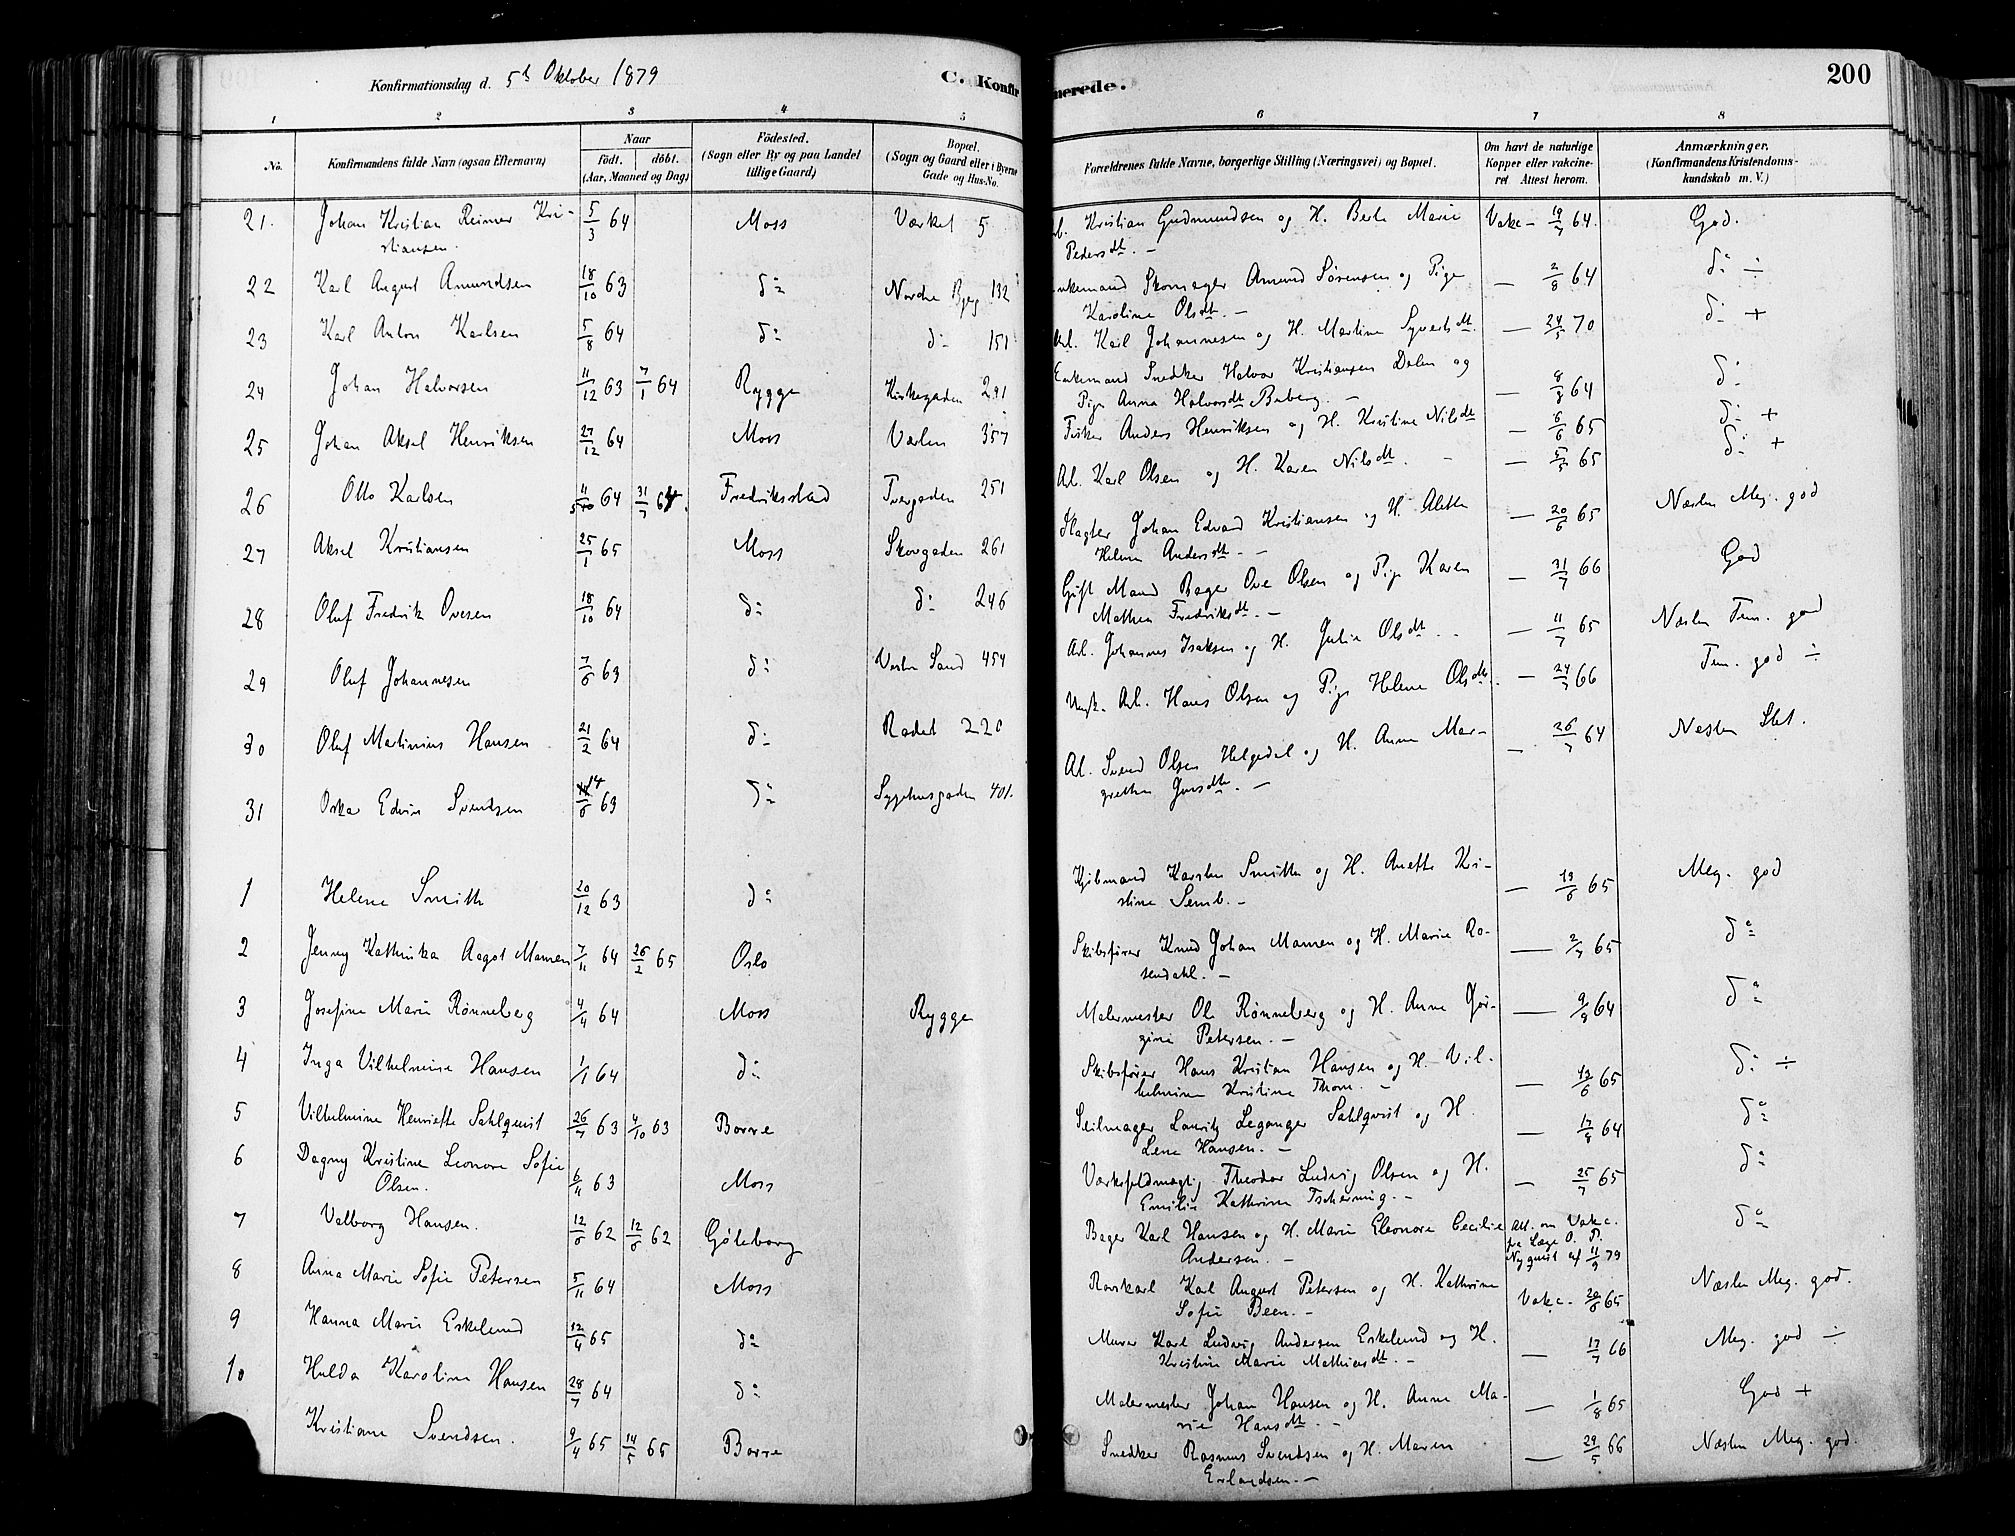 Konfirmationsdag d. 5t Oktober 1879
C. Konfir
merede.
200
1 2 3 4 5 6 7 8
No. Konfirmandens fulde Navn (ogsaa Efternavn) Naar födt. döbt. (Aar, Maaned og Dag) Födested. (Sogn eller By og paa Landet tillige Gaard) Bopæl. (Sogn og Gaard eller i Byerne Gade og Hus-No. Forældrenes fulde Navne, borgerlige Stilling (Næringsvei) og Bopæl. Om havt de naturlige Kopper eller vakcineret Attest herom. Anmærkninger, (Konfirmandens Kristendomskundskab m. V.)
21. Johan Kristian Reimer Kri- 5/3 64 Moss Værket 5 Kristian Gudmundsen og H. Berte Marie Vakc - 19/7 64. God.
stiansen. Pedersdt. -
22 Karl August Amundsen 18/10 63 do Nordre Byg 132 Enkemand Skomager Amund Sørensen og Pige - 2/8 64 do ÷
Karoline Olsdt. -
23 Karl Anton Karlsen 5/8 64 do do 151 Arb. Karl Johannesen og H. Martine Syvertsdt. - 24/5 70 do +
24 Johan Halvorsen 11/12 63 7/1 64 Rygge Kirkegaden 291 Enkemand Snedker Halvor Kristiansen Dalen og - 8/8 64 do
Pige Anna Halvorsdt -
25 Johan Aksel Henriksen 27/12 64 Moss Værlen 357 Fisker Anders Henriksen og H. Kristine Nilsdt - 6/6 65 do +
26 Otto Karlsen 11/10 64 31/7 64. Fredriksstad Tvergaden 251 Ab. Karl Olsen og H. Karen Nilsdt. - 5/5 65 do +
27 Aksel Kristiansen 25/1 65 Moss Skovgaden 261 Slagter Johan Edvard Kristiansen og H. Alette - 20/6 65 Næsten Meg. god
Helene Andersdt. -
28 Oluf Fredrik Ovesen 18/10 64 do do 246 Gift Mand Bager Ove Olsen og Pige Karen - 31/7 66 God
Mathea Fredriksdt. -
29 Oluf Johannesen 7/6 63 do Vestre Sand 454 Arb. Johannes Isaksen og H. Julie Olsdt. - 11/7 65 Næsten Tem. god
30 Oluf Martinius Hansen 21/2 64 do Radet 220 Ungk. Arb. Hans Olsen og Pige Helene Olsdt. - 24/7 66 Tem. god ÷
31 Oskar Edvin Svendsen 14/6 63 do Sygehusgaden 401. Ab. Svend Olsen Helgedal og H. Anne Mar- - 26/7 64 Næsten Slet.
grethe Jensdt. -
1 Helene Smith 20/12 63 do Kjøbmand Karsten Smith og H. Anette Kri- - 19/6 65 Meg. god
stine Semb. -
2 Jenny Kathinka Aagot Mamen 7/11 64 26/2 65 Oslo Skibsfører Knud Johan Mamen og H. Marie Ro- - 2/7 65 do
sendahl. -
3 Josefine Marie Rønneberg 4/4 64 Moss Rygge Malermester Ole Rønneberg og H. Anne Jør- - 9/9 64 do
gine Petersen. -
4 Inga Vilhelmine Hansen 1/1 64 do Skibsfører Hans Kristian Hansen og H. Vil- - 12/6 65 do ÷
helmine Kristine Thom. -
5 Vilhelmine Henriette Sahlqvist 26/7 63 4/10 63 Borre Seilmager Lauritz Leganger Sahlqvist og H. - 17/8 64 do
Lene Hansen. -
6 Dagny Kristine Leonore Sofie 6/11 63 Moss Værksfuldmægtig Theodor Ludvig Olsen og H. - 25/7 65 do
Olsen. Emilie Kathrine Tscherning. -
7 Valborg Hansen. 12/6 62 12/6 62 Göteborg Bager Karl Hansen og H. Marie Eleonore Cecilie Att. om Vakc. do
Andersen. - fra Læge O. P. Nyquist af 11/9 79
8 Anna Marie Sofie Petersen 5/11 64 Moss Rorskarl Karl August Petersen og H. Kathrine Vakc - 20/6 65 Næsten Meg. god.
Sofie Been. -
9 Hanna Marie Eskelund 12/4 65 do Murer Karl Ludvig Andersen Eskelund og H. - 17/7 66 Meg. god ÷
Kristine Marie Mathiasdt. -
10 Hulda Karoline Hansen 28/7 64 do Malermester Johan Hansen og H. Anne Ma- - 1/8 65 God +
rie Hansdt. -
Kristiane Svendsen. 9/4 65 14/5 65 Borre Snedker Rasmus Svendsen og H. Maren - 29/5 66 Næsten Meg. god.
Erlandsen. -